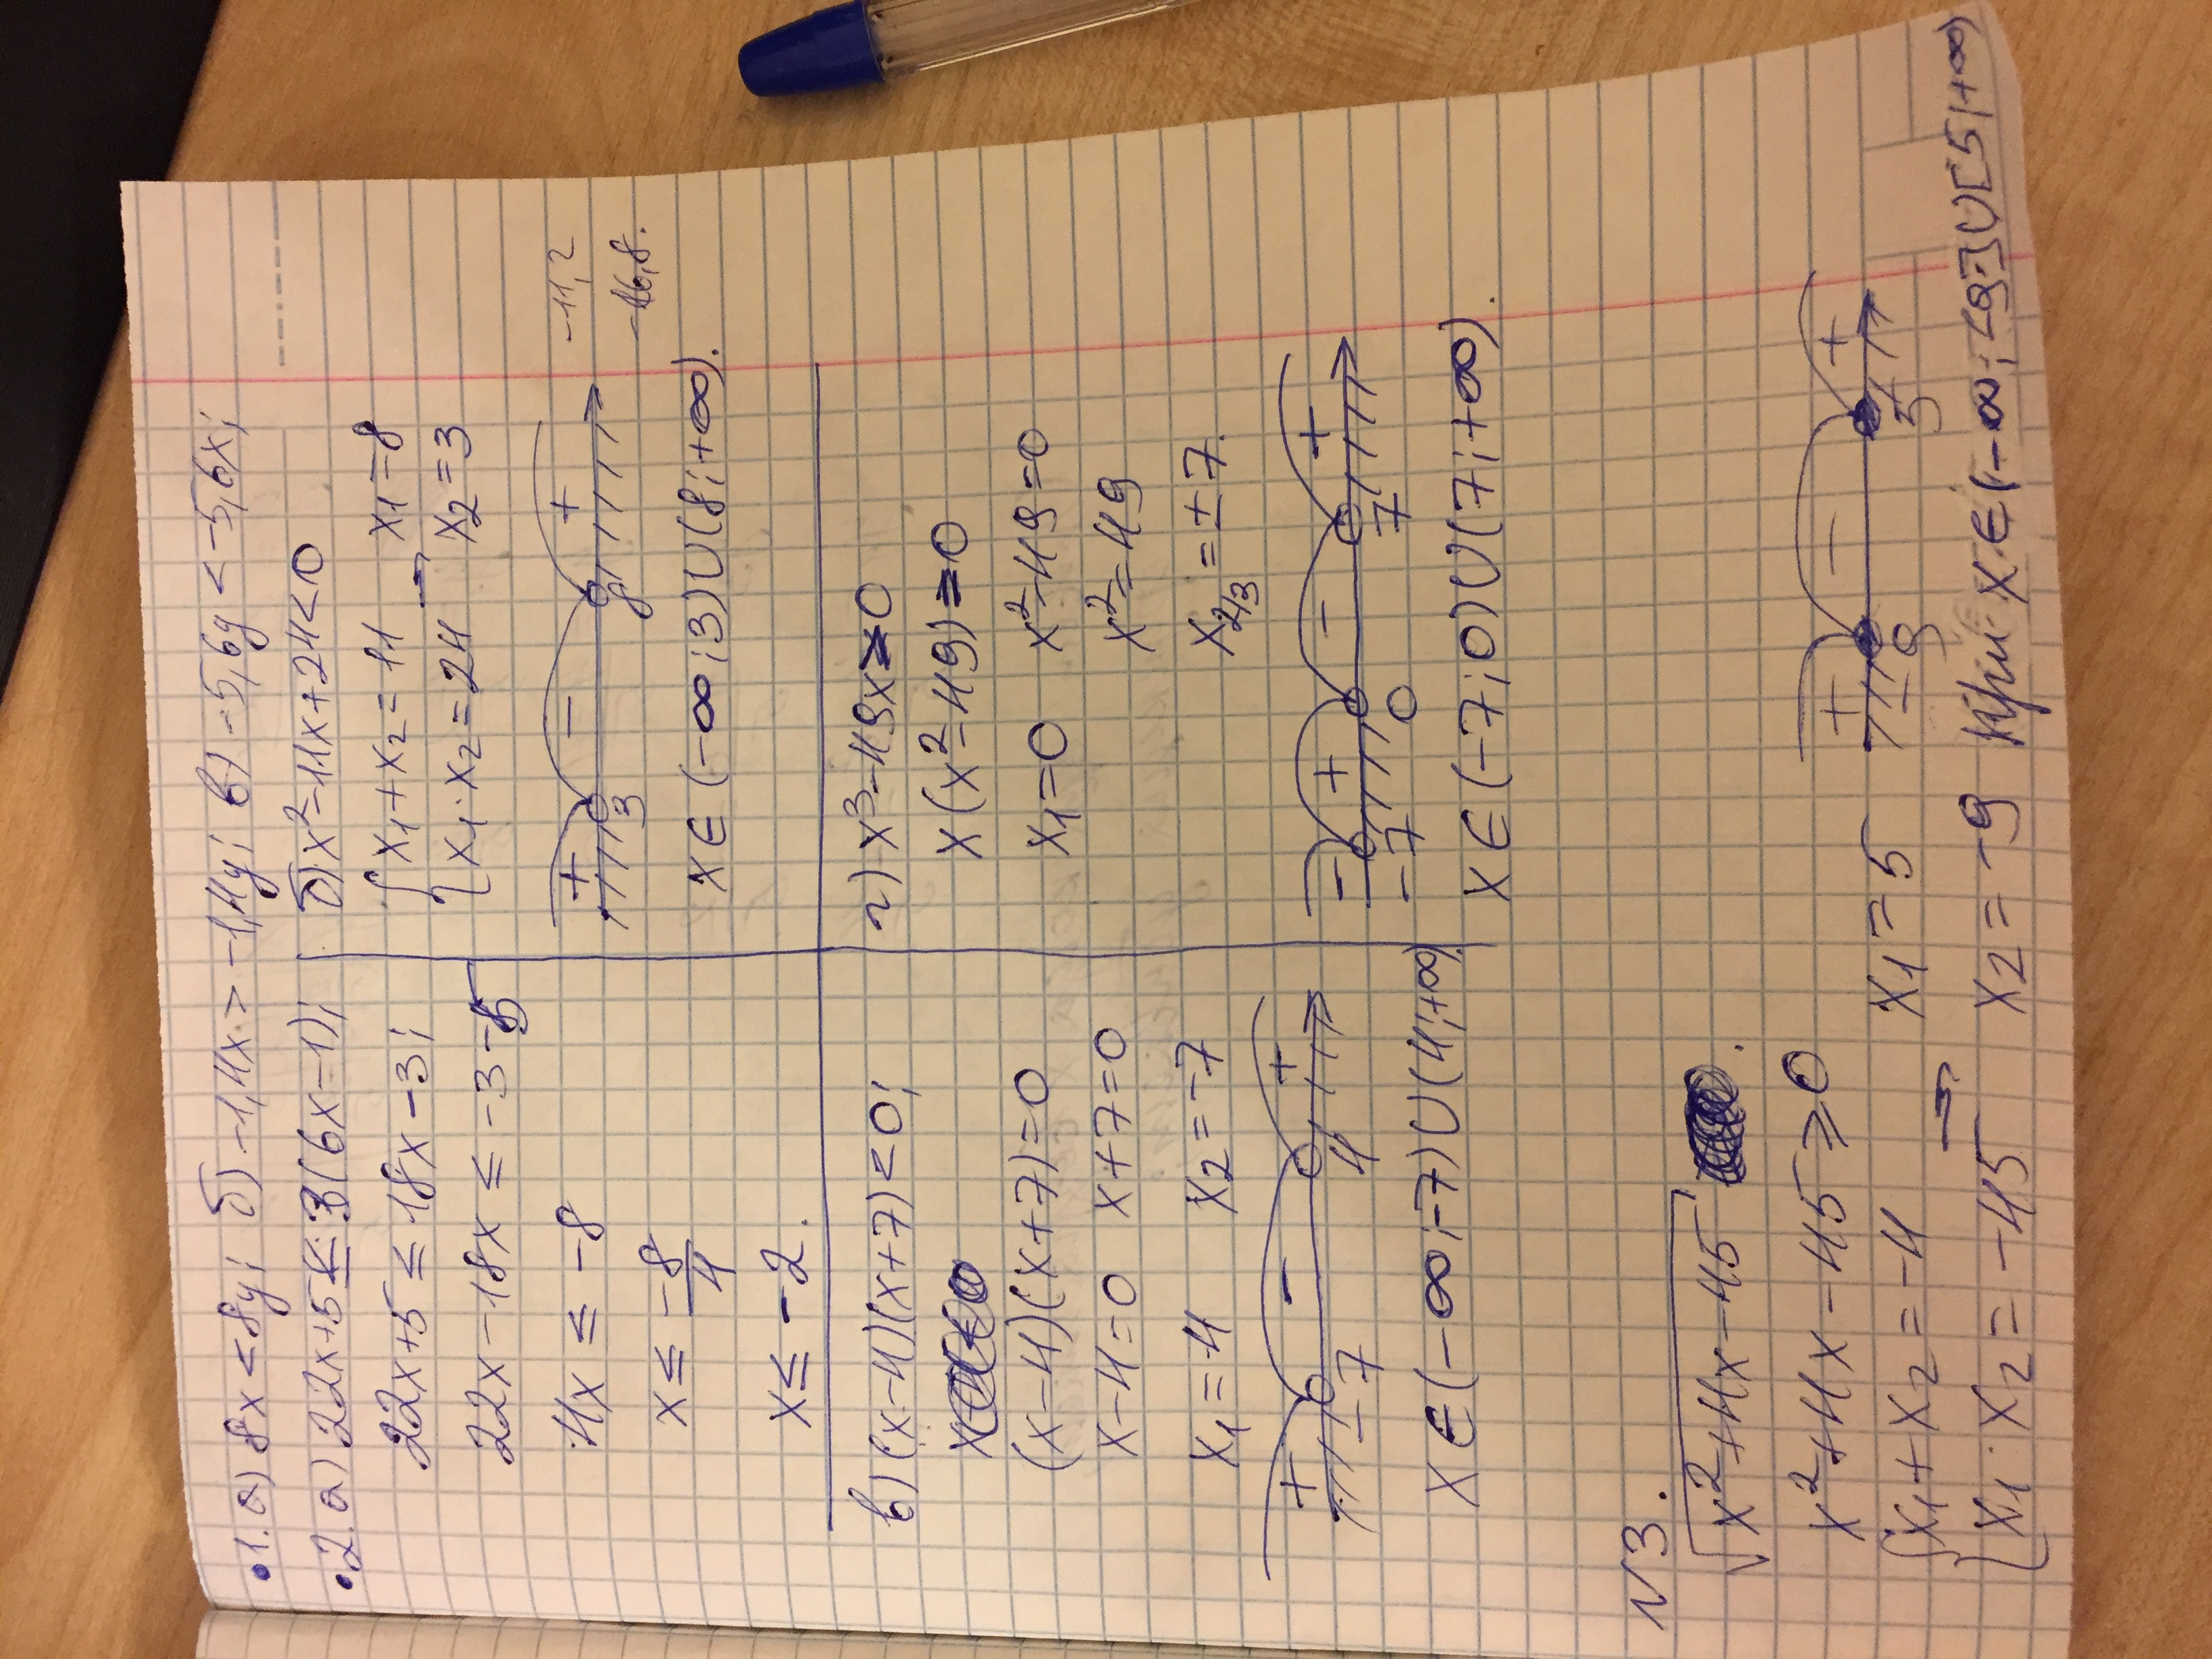 •1. а) 8x < 8y; б) -1,4x > -1,4y; в) -5,6y < -5,6x;
•2. а) 22x+5 ≤ 3(6x-1);
22x+5 ≤ 18x-3;
22x-18x ≤ -3-5
4x ≤ -8
x ≤ -8/4
x ≤ -2.
б) x²-11x+24<0
{x₁+x₂=11
{x₁·x₂=24 ⇒ x₁=8
x₂=3
+ - +
3 8
-11,2
-16,8.
x∈(-∞;3)∪(8;+∞).
в) (x-4)(x+7)<0;
(x-4)(x+7)=0
x-4=0 x+7=0
x₁=4 x₂=-7
+ - +
-7 4
x∈(-∞;-7)∪(4;+∞).
г) x³-49x≥0
x(x²-49)≥0
x₁=0 x²-49=0
x²=49
x₂,₃=±7.
- + - +
-7 0 7
x∈(-7;0)∪(7;+∞).
N3.
√x²+4x-45.
x²+4x-45≥0
{x₁+x₂=-4
{x₁·x₂=-45 ⇒ x₁=5
x₂=-9
+ - +
-9 5
при x∈(-∞;-9]∪[5;+∞)